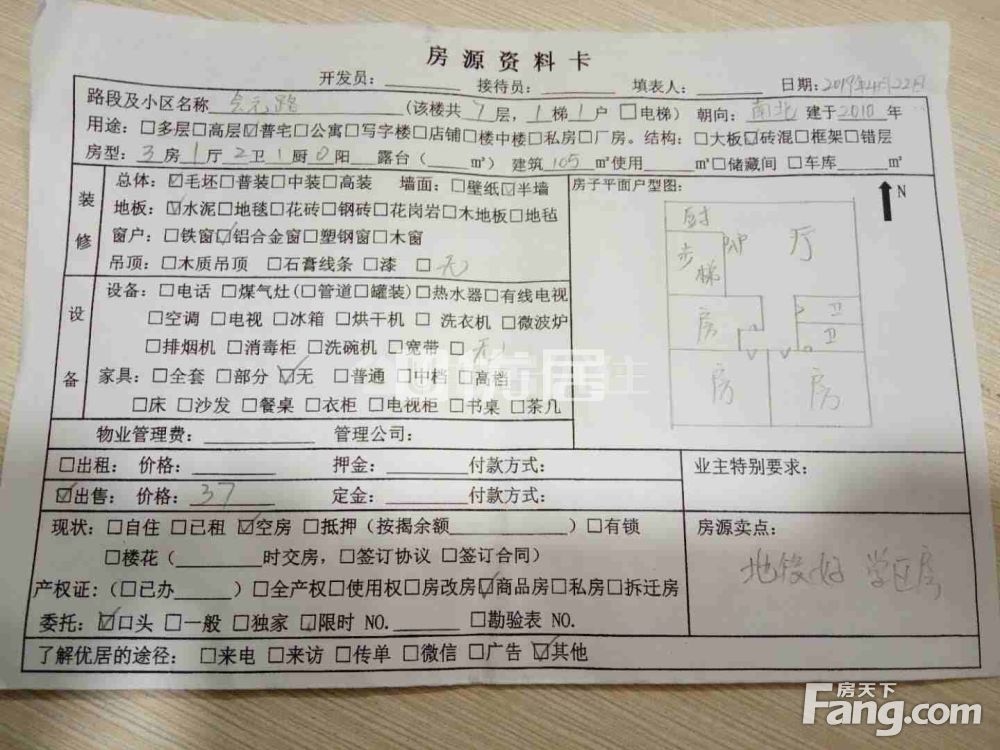 房源资料卡
开发员：________ 接待员：________ 填表人：________ 日期：2019年4月22日
路段及小区名称 会元路 （该楼共 7 层，1 梯 1 户 □电梯）朝向：南北 建于2010年
用途：□多层□高层☑普宅□公寓□写字楼□店铺□楼中楼□私房□厂房。结构：□大板☑砖混□框架□错层
房型：3房1厅2卫1厨0阳__露台（____㎡）建筑105㎡使用____㎡□储藏间□车库____㎡
装修
总体：☑毛坯□普装□中装□高装 墙面：□壁纸☑半墙
地板：☑水泥□地毯□花砖□钢砖□花岗岩□木地板□地毡
窗户：□铁窗☑铝合金窗□塑钢窗□木窗
吊顶：□木质吊顶 □石膏线条□漆 □无
设备
设备：□电话 □煤气灶（□管道□罐装）□热水器□有线电视
□空调 □电视 □冰箱 □烘干机 □洗衣机 □微波炉
□排烟机 □消毒柜 □洗碗机 □宽带 □无
家具：□全套 □部分 ☑无 □普通 □中档 □高档
□床 □沙发 □餐桌 □衣柜 □电视柜 □书桌 □茶几
房子平面户型图：
N
厨
步梯
厅
房
卫
卫
房
房
物业管理费：________ 管理公司：
□出租：价格：________ 押金：________付款方式：
☑出售：价格：37 定金：________付款方式：
业主特别要求：
现状：□自住 □已租 ☑空房 □抵押（按揭余额________）□有锁
□楼花（________时交房，□签订协议 □签订合同）
产权证：（□已办______）□全产权□使用权□房改房☑商品房□私房□拆迁房
委托：☑口头 □一般 □独家 ☑限时 NO.________ □勘验表 NO.
房源卖点：
地段好 学区房
了解优居的途径：□来电 □来访 □传单 □微信 □广告 ☑其他
房天下
Fang.com